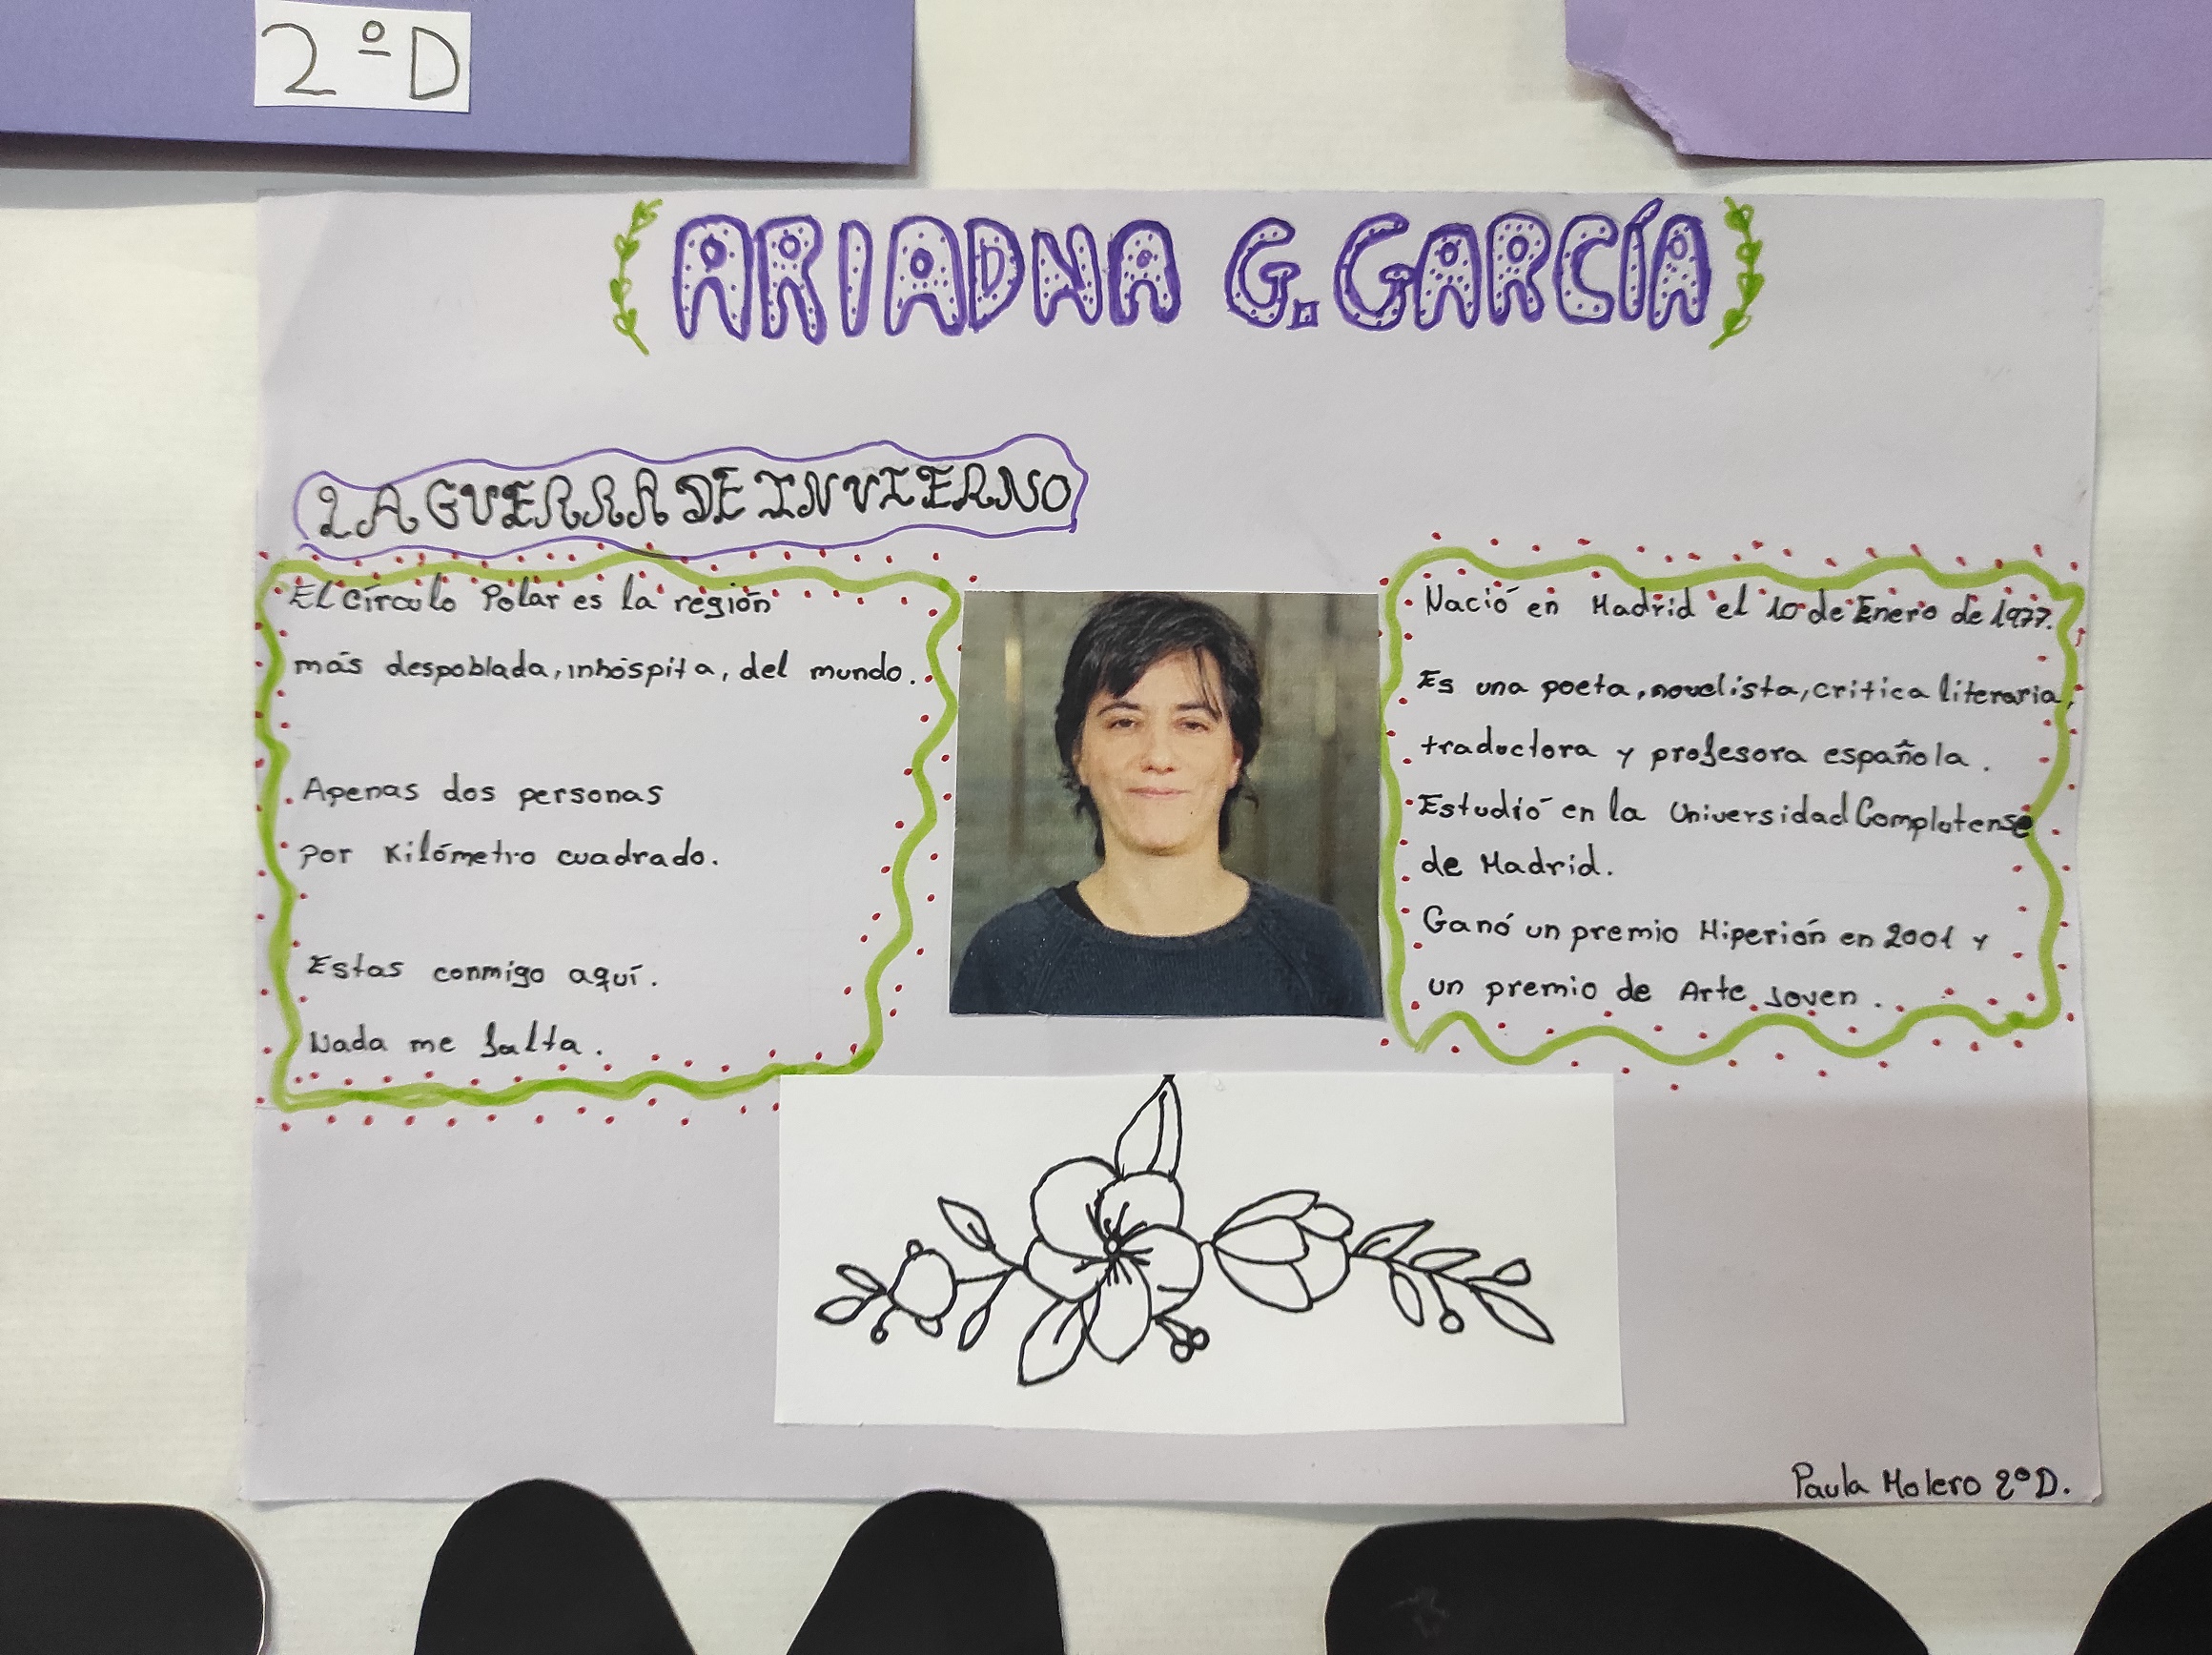 2ºD
ARIADNA G. GARCÍA
LA GUERRA DE INVIERNO
El círculo Polar es la región
más despoblada, inhóspita, del mundo.
Apenas dos personas
por Kilómetro cuadrado.
Estas conmigo aquí.
Nada me falta.
Nació en Madrid el 10 de Enero de 1977.
Es una poeta, novelista, crítica literaria,
traductora y profesora española.
Estudió en la Universidad Complutense
de Madrid.
Ganó un premio Hiperión en 2001 y
un premio de Arte Joven.
Paula Molero 2ºD.